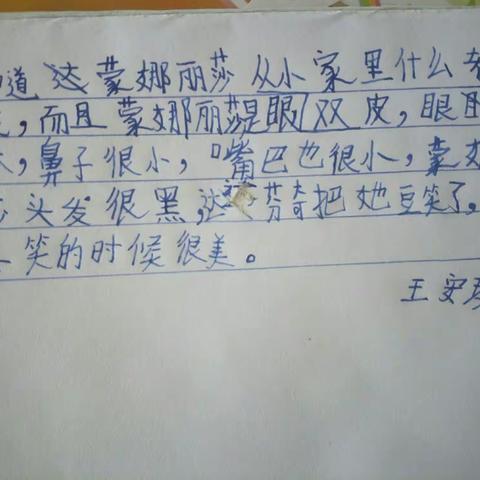 道达蒙娜丽莎从小家里什么
，而且蒙娜丽莎是眼双皮，眼
，鼻子很小，嘴巴也很小，蒙
头发很黑，达芬奇把她豆笑了，
笑的时候很美。
王安